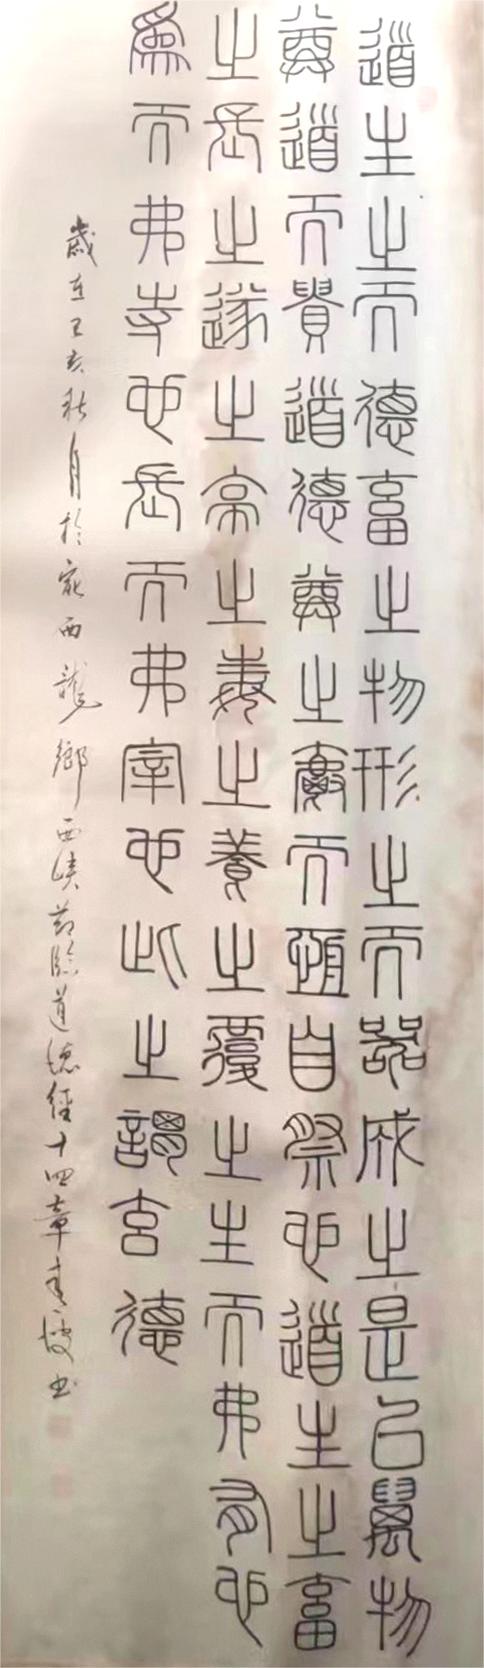 道生之而德畜之物形之而器成之是以萬物
尊道而貴道德尊之爵而恒自祭也道生之畜
之長之遂之亭之毒之養之覆之生而弗有也
為而弗寺也長而弗宰也此之謂玄德
歲在己亥秋月於宛西龍鄉西峽節臨道德經十四章書